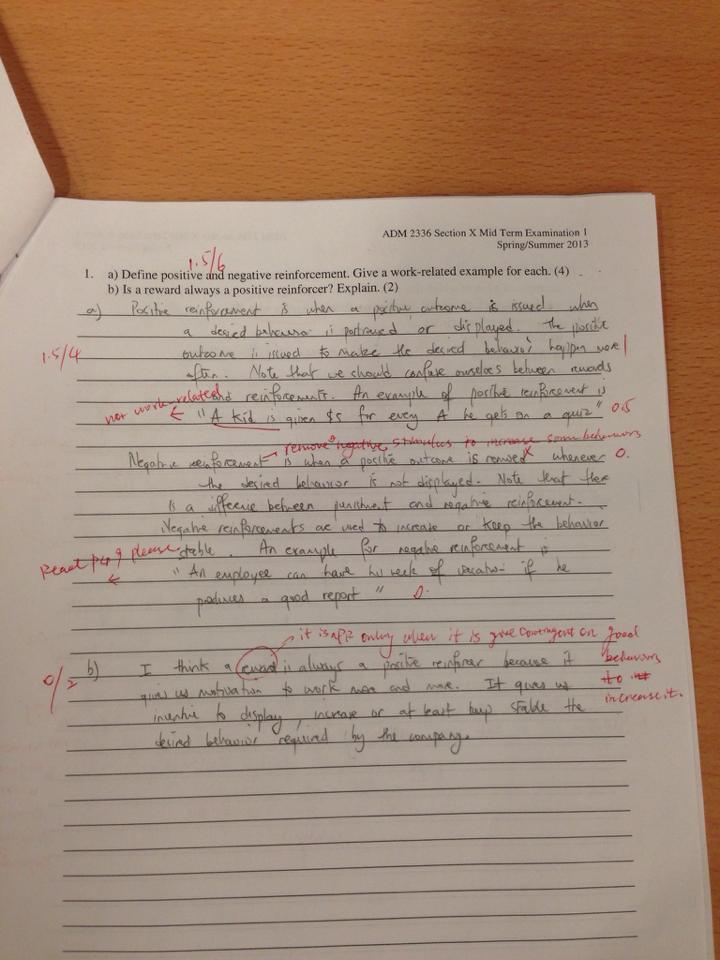 ADM 2336 Section X Mid Term Examination 1
Spring/Summer 2013
1.5/6
1. a) Define positive and negative reinforcement. Give a work-related example for each. (4)
b) Is a reward always a positive reinforcer? Explain. (2)
a) Positive reinforcement is when a positive outcome is issued when
a desired behavior is portrayed or displayed. The positive
1.5/4
outcome is issued to make the desired behavior happen more 1
often. Note that we should confuse ourselves between rewards
and reinforcements. An example of positive reinforcement is
not work-related
"A kid is given $5 for every A he gets on a quiz" 0.5
remove negative stimulus to increase some behaviors
Negative reinforcement is when a positive outcome is removed whenever 0.
the desired behavior is not displayed. Note that there
is a difference between punishment and negative reinforcement.
Negative reinforcements are used to increase or keep the behavior
stable. An example for negative reinforcement is
Read please
"An employee can have his week of vacation if he
produces a good report" 0.
it is only when it is give contingent on good
behaviors
to it
increase it.
0/2
b) I think a reward is always a positive reinforcer because it
gives us motivation to work more and more. It gives us
incentive to display, increase or at least keep stable the
desired behavior required by the company.